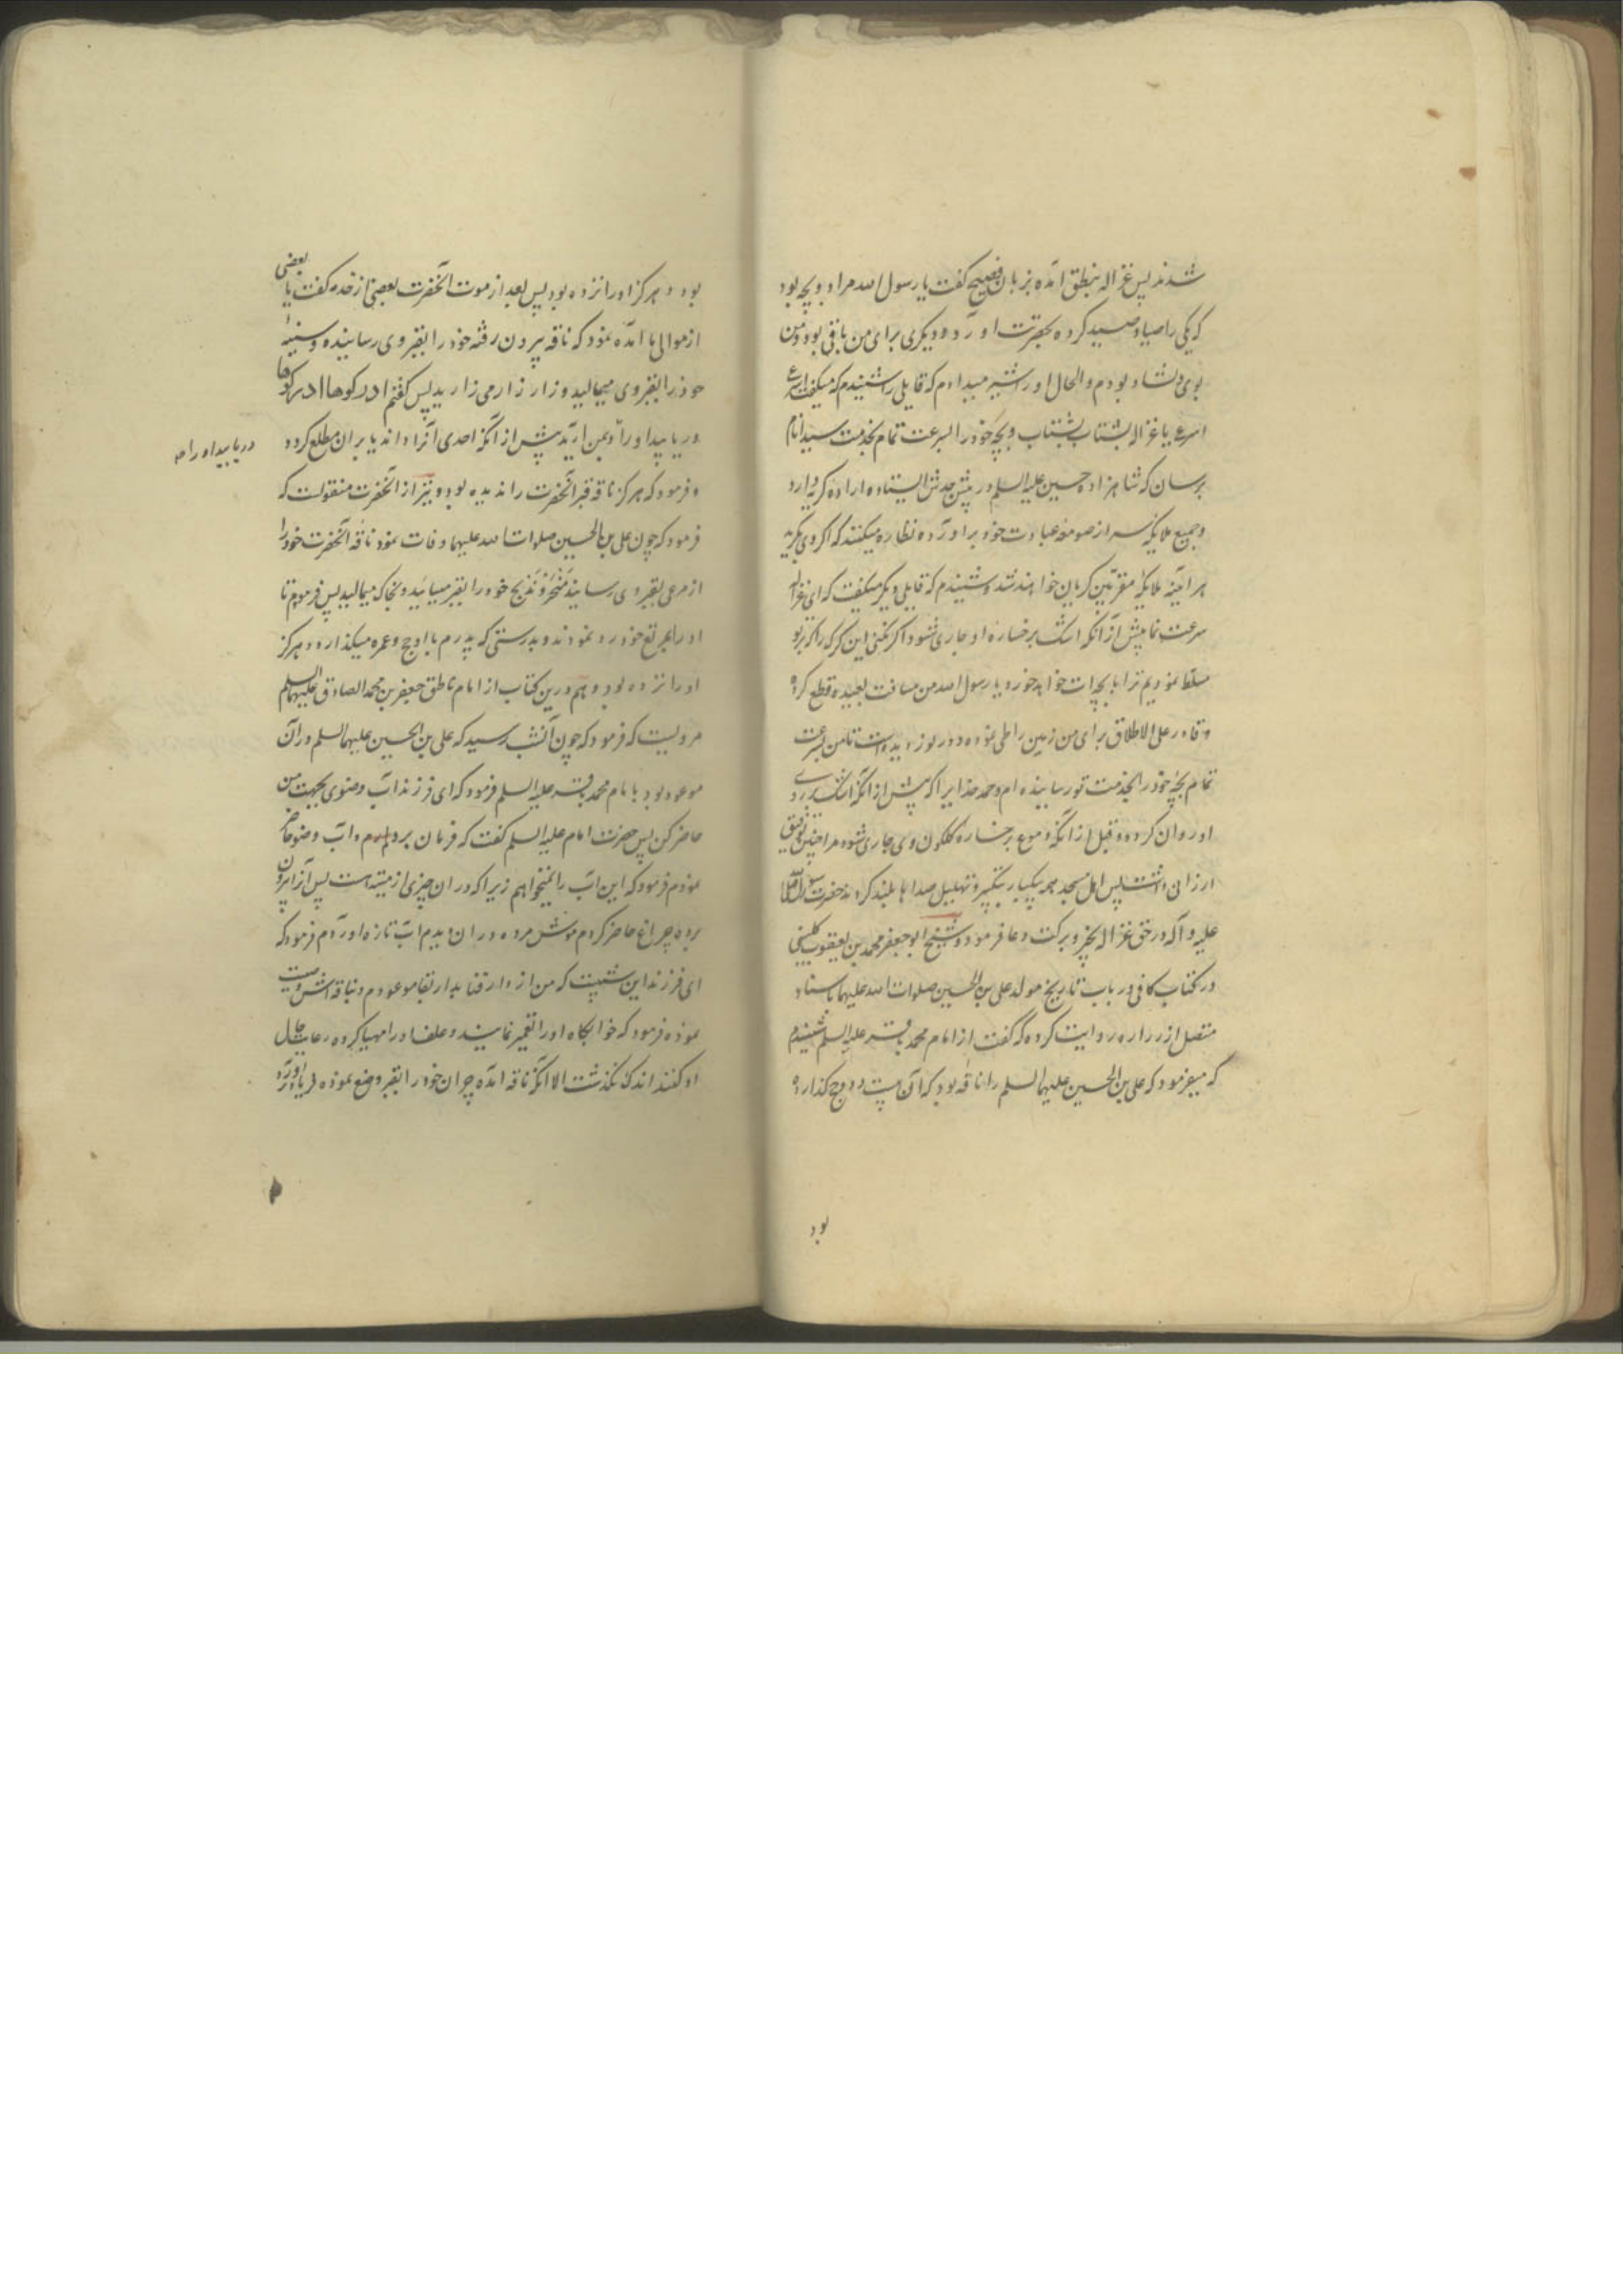 شدند پس غزاله بنطق آمده بزبان فصیح گفت یا رسول الله مرا دو بچه بود
که یکی را صیاد صید کرده بحضرت آورد و دیگری برای من باقی بود و من
بوی دلشاد بودم و الحال او را شیر میدادم که قایلی را شنیدم که میگفت اسرع
اسرع یا غزاله بشتاب بشتاب و بچه خود را بسرعت تمام بخدمت سید انام
برسان که شاهزاده حسین علیه السلم در پیش جدش ایستاده اراده گریه دارد
و جمیع ملایکه سر از صومعه عبادت خود برآورده نظاره میکنند که اگر وی بگرید
هر آینه ملایکه مقربین گریان خواهند شد و شنیدم که قایلی دیگر میگفت که ای غزاله
سرعت نما پیش از آنکه اشک بر رخساره او جاری شود و اگر نکنی این گرگ را که بر تو
مسلط نمودیم ترا با بچه ات خواهد خورد یا رسول الله من مسافت بعیده قطع کرده
و قادر علی الاطلاق برای من زمین را طی نموده در نوردیده است تا من بسرعت
تمام بچه خود را بخدمت تو رسانیده ام و حمد خدایرا که پیش از آنکه اشک بر روی
او روان گردد و قبل از آنکه دموع بر رخساره گلگون وی جاری شود مرا چنین توفیق
ارزانی داشت پس اهل مسجد همه بیکبار بتکبیر و تهلیل صداها بلند کردند حضرت رسول صلی الله
علیه و آله در حق غزاله بخیر و برکت دعا فرمود و شیخ ابو جعفر محمد بن یعقوب کلینی
در کتاب کافی در باب تاریخ مولد علی بن الحسین صلوات الله علیهما باسناد
متصل از زراره روایت کرده که گفت از امام محمد باقر علیه السلم شنیدم
که میفرمود که علی بن الحسین علیهما السلم را ناقه بود که آن بیست و دو حج گذارده
بود
بود و هرگز او را نزده بود پس بعد از موت آنحضرت بعضی از خدم گفت یا بعضی
از موالی ما آمده نمود که ناقه بیرون رفته خود را بقبر وی رسانیده و سینه
خود را بقبر وی میمالید و زار زار می زارید پس گفتم ادرکوها ادرکوها
دریابید او را و بمن آرید پیش از آنکه احدی آنرا داند یا بر آن مطلع گردد
دریابید او را
و فرمود که هرگز ناقه قبر آنحضرت را ندیده بود و نیز از آنحضرت منقولست که
فرمود که چون علی بن الحسین صلوات الله علیهما وفات نمود ناقه آنحضرت خود را
از مرعی بقبر وی رسانید منحر و مذبح خود را بقبر میسایید و بخاک میمالید پس فرمودم تا
او را بمرتع خود رد نمودند و بدرستی که پدرم با او حج و عمره میگذارد و هرگز
او را نزده بود و هم درین کتاب از امام ناطق جعفر بن محمد الصادق علیهما السلم
مرویست که فرمود که چون آنشب رسید که علی بن الحسین علیهما السلم در آن
موعود بود با امام محمد باقر علیه السلم فرمود که ای فرزند آب وضوی بجهت من
حاضر کن پس حضرت امام علیه السلم گفت که فرمان بردارم و آب وضو حاضر
نمودم فرمود که این آب را نمیخواهم زیرا که در آن چیزی از میته است پس آنرا بیرون
برده چراغ حاضر کردم موش مرده در آن دیدم آب تازه آوردم فرمود که
ای فرزند این شبیست که من از دار فنا بدار بقا موعودم و بناقه اش وصیت
نموده فرمود که خوابگاه او را تعمیر نمایند و علف او را مهیا کرده رعایت حال
او کنند اندک نگذشت الا آنکه ناقه آمده جران خود را بقبر وضع نموده فریاد برآورد